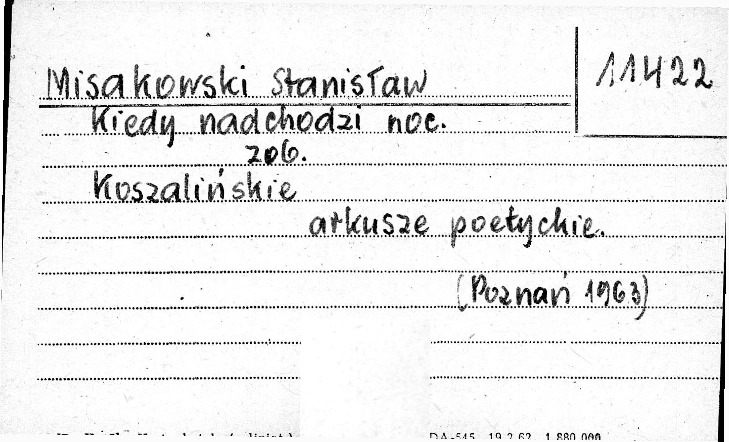 Misakowski Stanisław
11422
Kiedy nadchodzi noc.
zob.
Koszalińskie
arkusze poetyckie.
(Poznań 1963)
DA-545 19.2.62 1.880.000